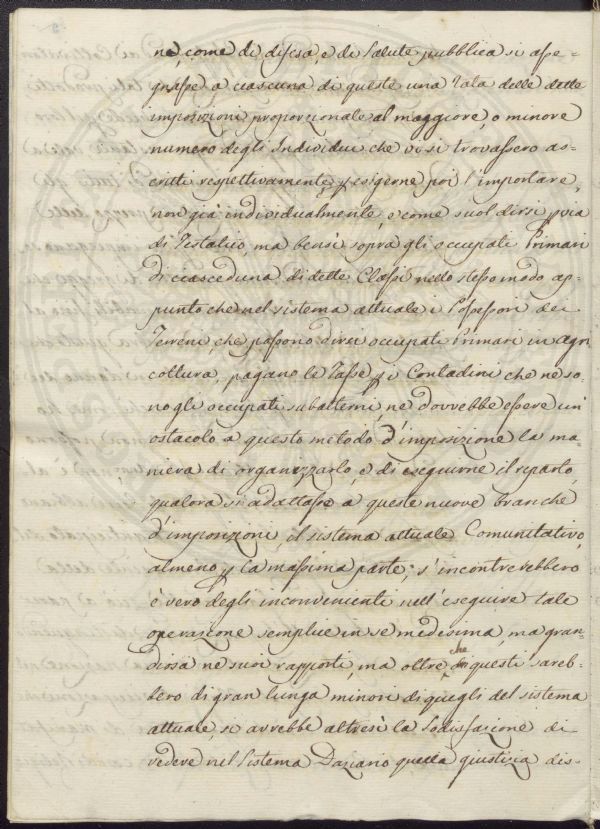 ne, come di difesa, e di Salute pubblica si asse-
gnasse a ciascuna di queste una Tata delle dette
imposizioni proporzionale al maggiore, o minore
numero degli Individui che vi si trovassero as-
critti respettivamente, p esigerne poi l'importare,
non già individualmente, o come suol dirsi p via
di Testatico, ma bensì sopra gli occupati Primari
di ciascheduna di dette Classi nello stesso modo ap-
punto che nel sistema attuale i Possessori dei
Terreni, che possono dirsi occupati Primari in agri
coltura, pagano le Tasse p i Contadini che ne so-
no gli occupati subalterni, ne dovrebbe essere un'
ostacolo a questo metodo d'imposizione la ma-
niera di organizzarlo, e di eseguirne il riparto,
qualora si adattasse a queste nuove branche
d'imposizioni, il sistema attuale Comunitativo,
almeno p la massima parte; s'incontrerebbero
è vero degli inconvenienti nell'eseguire tale
operazione semplice in se medesima, ma gran-
diosa ne suoi rapporti, ma oltre che questi sareb-
bero di gran lunga minori di quegli del sistema
attuale, si avrebbe altresì la sodisfazione di
vedere nel Sistema Daziario quella giustizia dis-